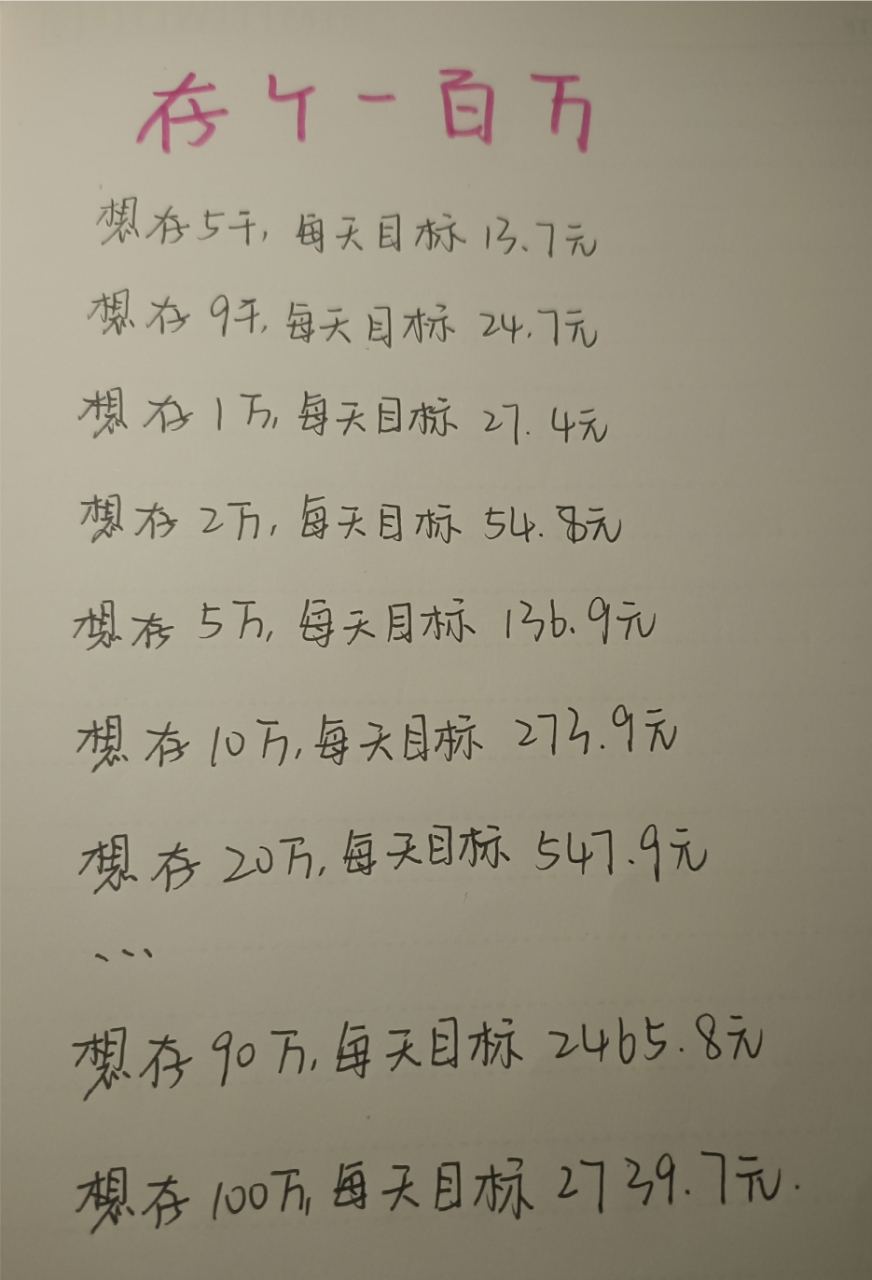 存个一百万
想存5千,每天目标13.7元
想存9千,每天目标24.7元
想存1万,每天目标27.4元
想存2万,每天目标54.8元
想存5万,每天目标136.9元
想存10万,每天目标273.9元
想存20万,每天目标547.9元
...
想存90万,每天目标2465.8元
想存100万,每天目标2739.7元.